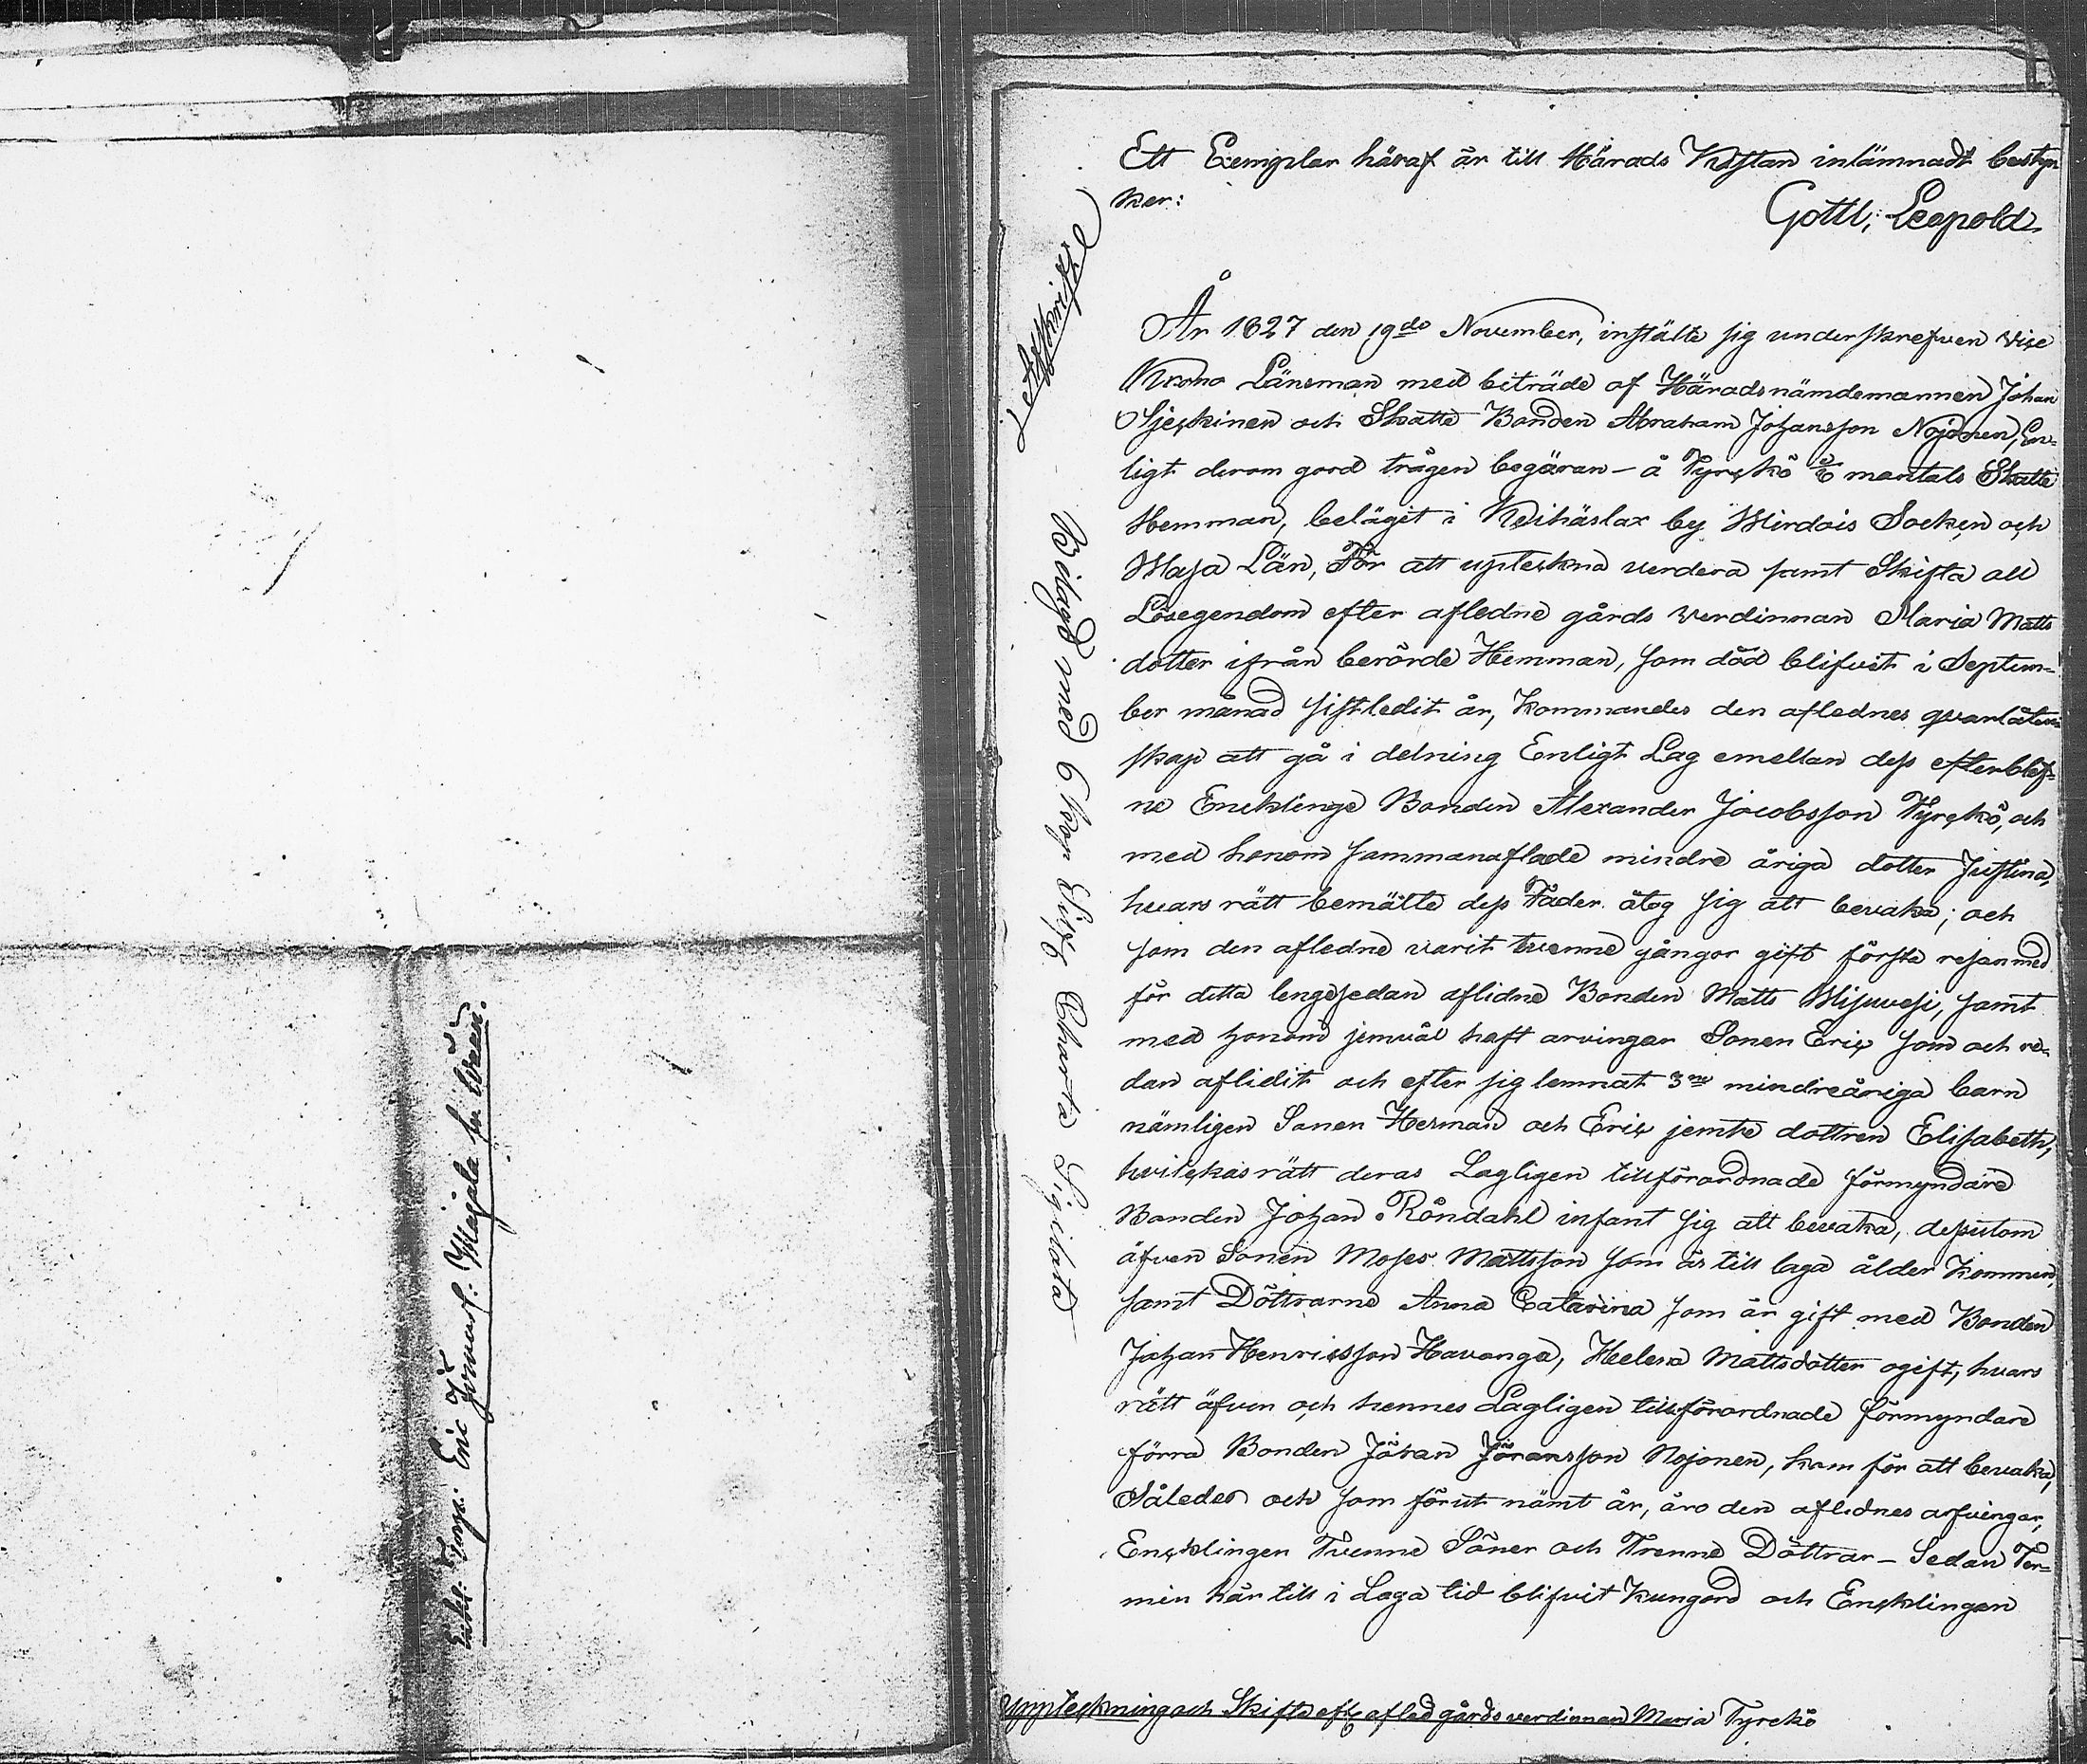 Ett Exemplar häraf är till Härads Kistan inlämnadt besty
ker:
Gottl: Leopold
Afskrift
År 1827 den 19de November, instälte sig underskrefven vice
Krono Länsman med biträde af Häradsnämdemannen Johan
och Skatte Bonden Abraham Johansson Nojonen, En-
ligt derom gord trägen begäran - å Tyrckö mantals Skatte
Hemman, beläget i Keihäslax by Wirdois Socken och
Wasa Län, För att upteckna verdera samt Skifta all
Lösegendom efter afledne gårds verdinnan Maria Matts
dotter ifrån berörde Hemman, som död blifvit i Septem-
ber månad sistledit år, Kommandes den aflednes qvarlåten
skap att gå i delning Enligt Lag emellan dess efterblef-
ne Enckling Bonden Alexander Jacobsson Tyrckö, och
med honom sammanaflade mindre åriga dotter Justina,
hvars rätt bemälte dess Fader åtog sig att bevaka; och
som den afledne varit tvenne gångor gift första resan med
för detta lengesedan aflidne Bonden Matts Wisuvesi, samt
med honom jemväl haft arvingar Sonen Eric som och re-
dan aflidit och efter sig lemnat 3ne mindreåriga barn
nämligen Sonen Herman och Eric jemte dottren Elisabeth,
hvilckas rätt deras Lagligen tillförordnade förmyndare
Bonden Johan Röndahl infant sig att bevaka, dessutom
äfven Sonen Moses Mattsson som är till laga ålder Kommen,
samt Döttrarne Anna Catarina som är gift med Bonden
Johan Henricsson Havanga, Helena Mattsdotter ogift, hvars
rätt äfven och hennes Lagligen tillförordnade förmyndare
förra Bonden Johan Jöransson Nojonen, kom för att bevaka,
Således och som förut nämt är, äro den aflidnes arfvingar,
Encklingen Tvenne Söner och Trenne Döttrar - Sedan Ter-
min här till i Laga tid blifvit Kungord och Encklingen
Bilagd med 6 Kop Silf Charta Sigilata
Uppteckning och Skifte eft afled gårdsverdinnan Maria Tyrckö
Eric